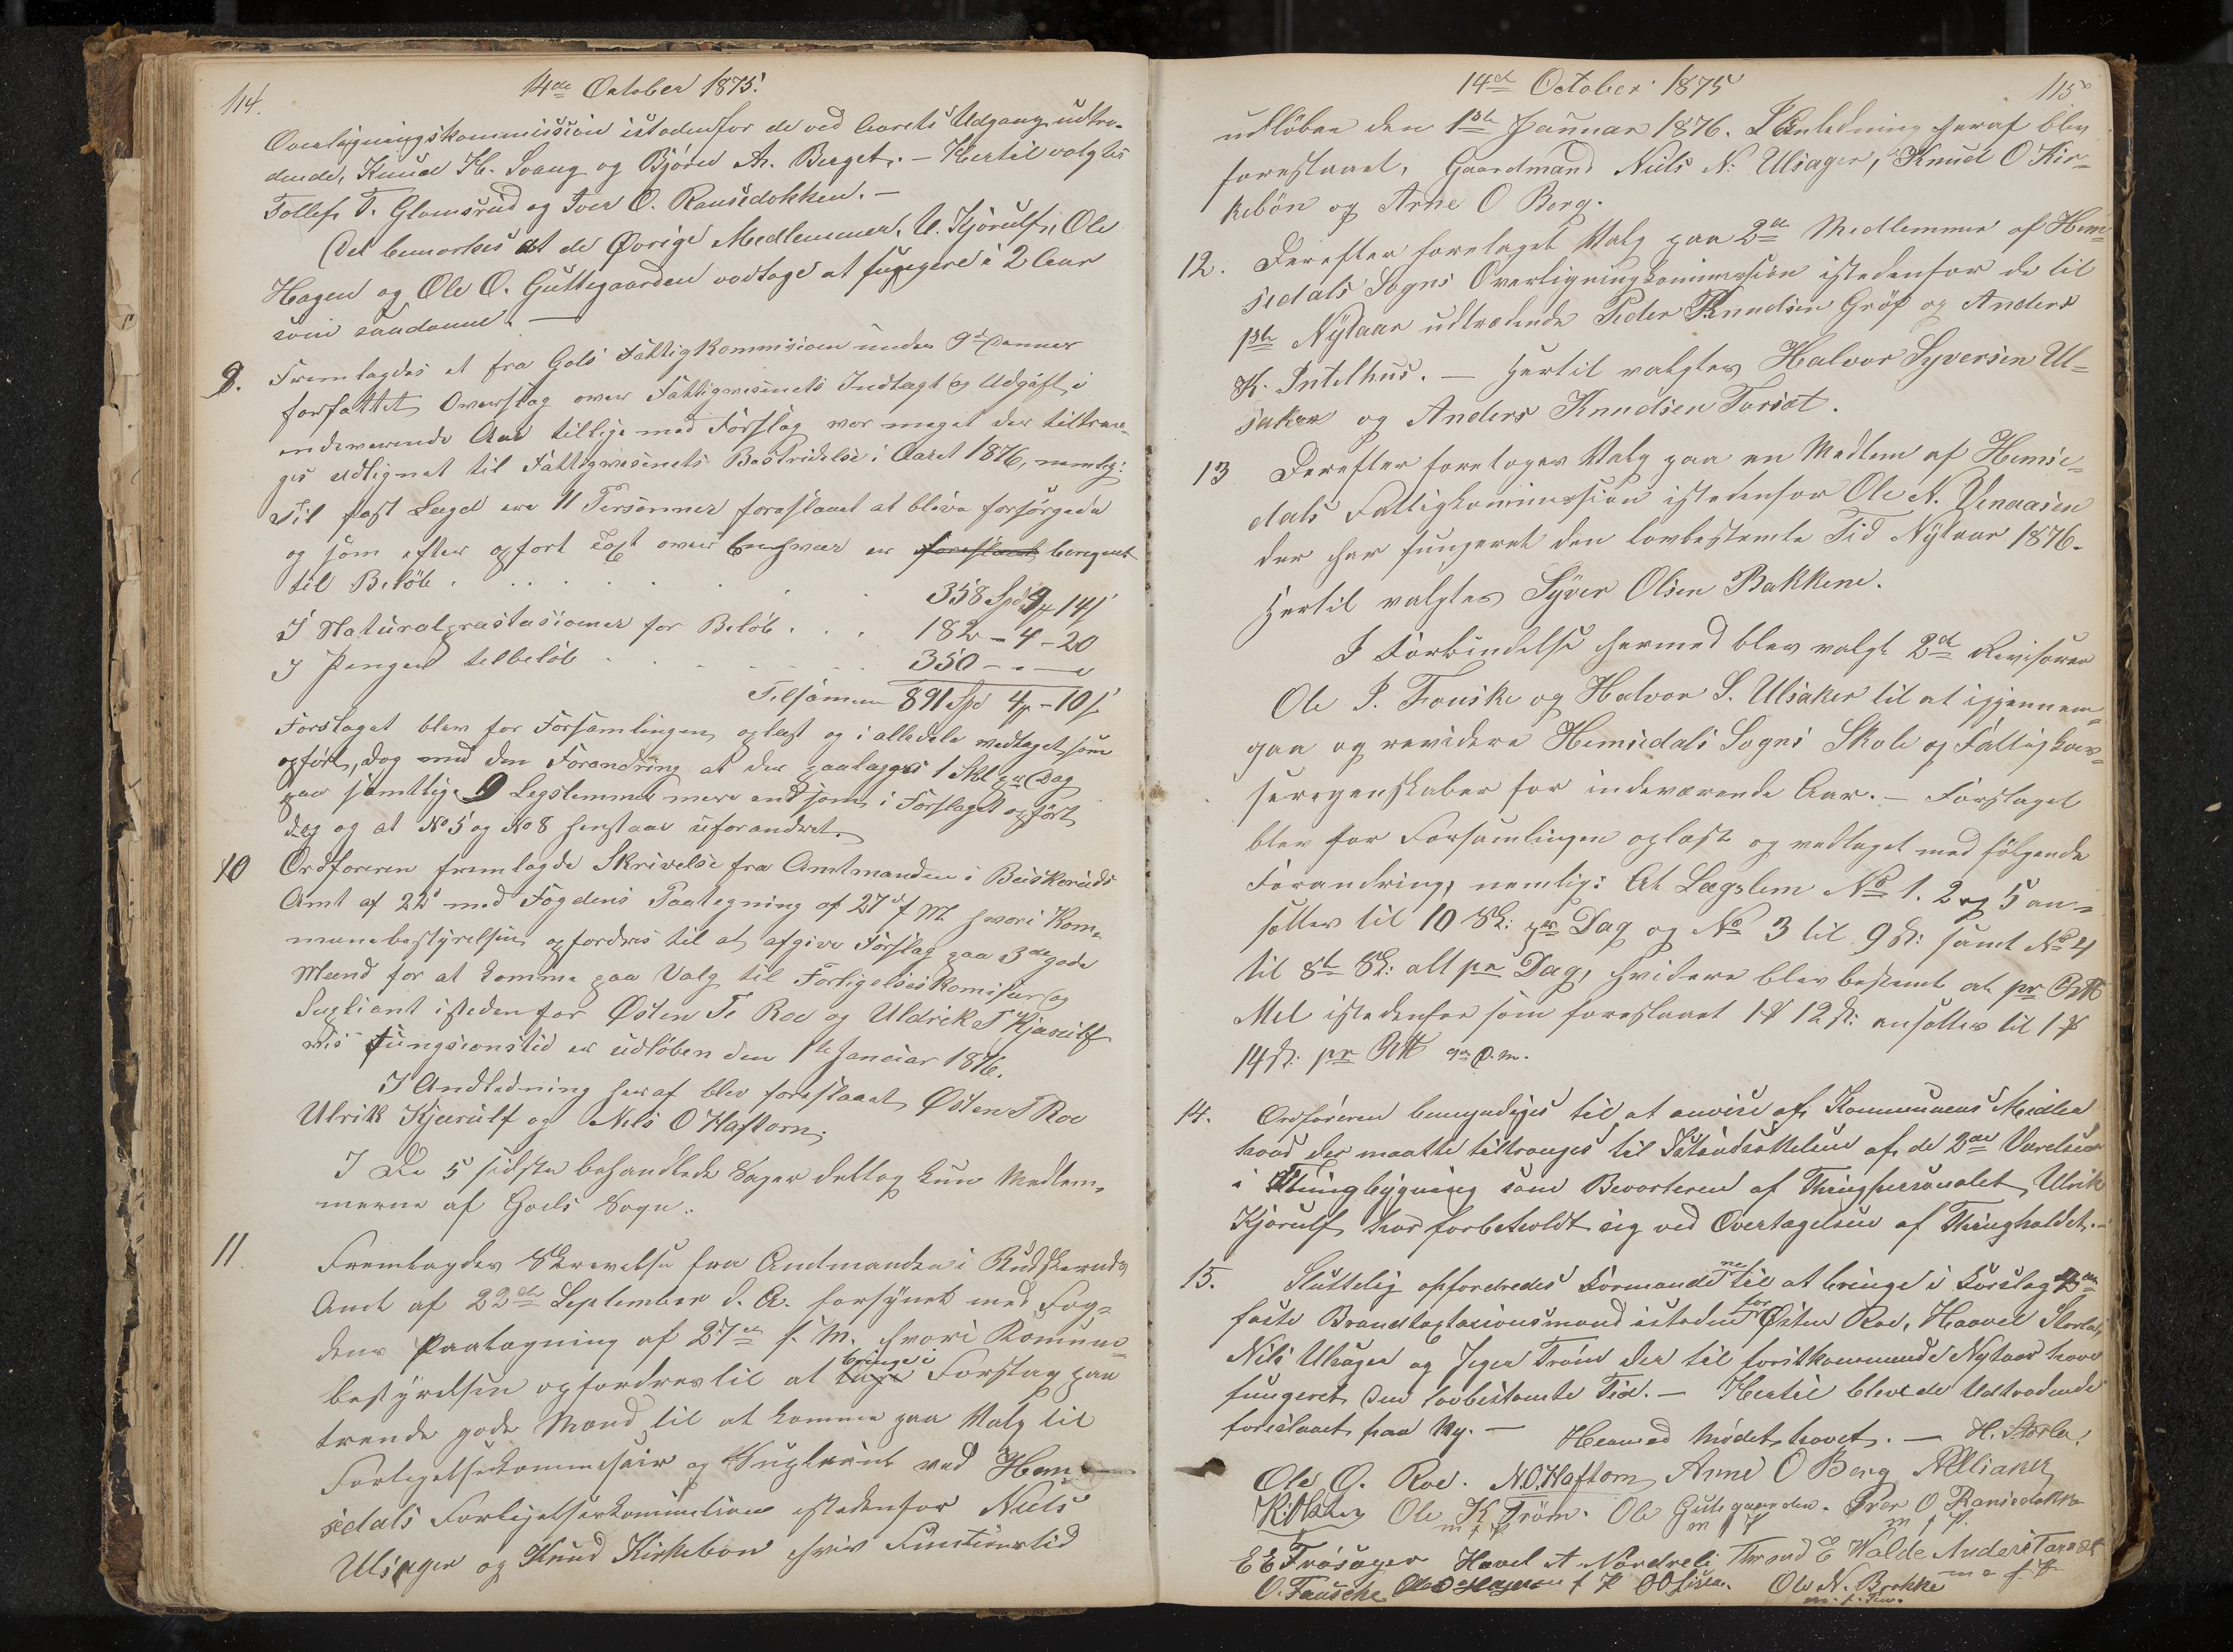 114.
14de October 1875.
Overligningskommission istedenfor de ved Aarets Udgang udtræ-
dende, Knud H. Svang og Bjørn A. Berget. — Hertil valgtes
Tollef T. Glomsrud og Iver O. Ransedokken. —
Det bemærkes at de Øvrige Medlemmer, U. Kjørulf, Ole
Hagen og Ole O. Guttegaarden vedtoge at fungere i 2 Aar
som saadanne. —
9. Fremlagdes et fra Gols Fattigkommision under 9d Dennes
forfattet Overslag over Fattigvesenets Indtægt og Udgift i
indeværende Aar tillige med Forslag vor meget der tiltræn-
ges udlignet til Fattigvesenets Bestridelse i Aaret 1876, nemlig:
Til fast Lægd ere 11 Personner foreslaaet at blive forsørgede
og som efter opført Lægt over Enhver er foreslaaet beregnet
til Beløb . . . . . . 358 Spd 4 14 s
I Naturalpræstasioner for Beløb . . . 182 - 4 - 20
I Penger tilbeløb . . . . . 350 - - -
Tilsamen 891 Spd 4 - 10 s
Forslaget blev for Forsamlingen oplæst og i alledele vedtaget som
opført, dog med den Forandring at der paalægges 1 Skl pr Dag
paa samtlige 9 Legslemmer mere end som i Forslaget opført
dog og at No 5 og No 8 henstaar uforandret.
10 Ordføreren fremlagde Skrivelse fra Amtmanden i Buskeruds
Amt af 22d med Fogdens Paategning af 27d f M hvori Kom-
munebestyrelsen opfordres til at afgive Forslag paa 3de gode
Mænd for at komme paa Valg til Forligelseskomisær og
Supliant isteden for Østen T. Roe og Uldrick T Kjærulf
vis fungsionstid er udløben den 1te Januar 1876.
I Andledning heraf blev foreslaaet Østen T Roe
Ulrik Kjærulf og Nils O Haftorn.
I De 5 sidste behandlede Sager deltog kun Medlem-
merne af Goels Sogn.
11. Fremlagdes Skrivelse fra Amtmanden i Buskeruds
Amt af 22de September d. A. forsynet med Fog-
dens Paategning af 27de s. M. hvori Komune-
bestyrelsen opfordres til at tage bringe i Forslag paa
trende gode Mænd til at komme paa Valg til
Forligelseskommisær og Supleant ved Hem-
sedals Forligelseskommission istedenfor Niels
Ulsager og Knud Kirkebøn hvis Functionstid
14de October 1875
115
udløber den 1ste Januar 1876. I Anledning heraf blev
foreslaaet, Gaardmand Niels N. Ulsager, Knud O Kir-
kebøn og Arne O Berg.
12. Derefter foretaget Valg paa 2de Medlemmer af Hem-
sedals Sogns Overligningskommission istedenfor de til
1ste Nytaar udtrædende Peder Knudsen Grøf og Anders
K. Intelhus. — Hertil valgtes Halvor Syversen Ul-
saker og Anders Knudsen Torset.
13 Derefter foretoges Valg paa en Medlem af Hemse-
dals Fattigkommission istedenfor Ole N. Venaasen
der har fungeret den lovbestemte Tid Nytaar 1876.
Hertil valgtes Syver Olsen Bakkene.
I Forbindelse hermed blev valgt 2de Revisorer
Ole P. Fauske og Halvor S. Ulsaker til at igjennem-
gaa og revidere Hemsedals Sogns Skole og Fattigkas-
seregenskaber for indeværende Aar. — Forslaget
blev for Forsamlingen oplæst og vedtaget med følgende
Forandring, nemlig: At Lægslem No 1. 2 og 5 an-
sættes til 10 Sk: pr Dag og No 3 til 9 sk: samt No 4
til 8te Sk: alt pr Dag, hvidere blev bestemt at pr
Mel istedenfor som foreslaaet 1 12 sk: ansættes til 1
14 sk. pr
14. Ordføreren bemyndiges til at anvise af Kommunens Midler
hvad der maatte tiltrænges til Istandsættelsen af de 2de Værelser
i Thingbygning som Beværteren af Thingpersonalet, Ulrik
Kjørulf har forbeholdt sig ved Overtagelsen af Thingholdet. —
15. Sluttelig opfordredes Formændene til at bringe i Forslag 4de
faste Brandtaxtasionsmænd isteden for Østen Roe, Haavel Storla,
Nils Ulsager og Jeger Trøim der til førstkommende Nytaar have
fungeret den lovbestemte Tid. — Hertil bleve de Udtrædende
foreslaaet paa Ny. — Hermed Mødet hævet. — H. Storla.
Ole O. Roe. N. O. Haftorn Arne O Berg N Ulsaker
Ole K Trøim. Ole Guttegaarden. Iver O Ransedokken
m f P m f P m f P.
E E Trøsager Havel A Nordreli Thrond E Wolde Anders Torset
O. Fauske Ole Hagen f P Ole N. Brokke